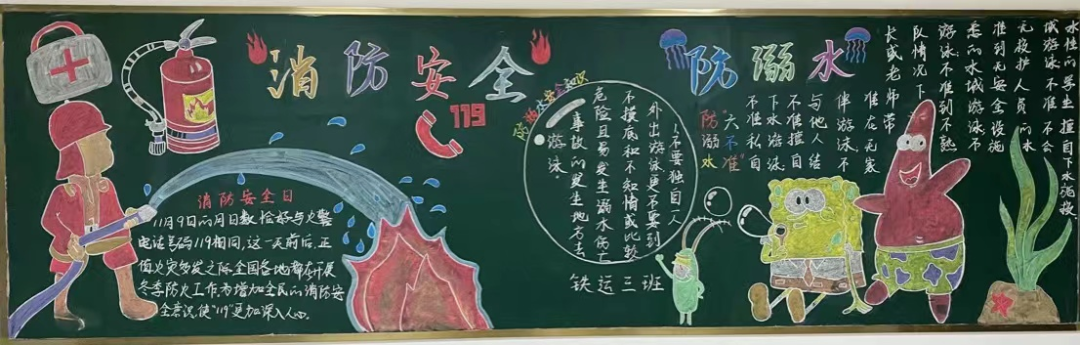 消防安全
119
消防安全日
11月9日的月日数恰好与火警
电话号码119相同,这一天前后,正
值火灾多发之际,全国各地都在开展
冬季防火工作,为增加全民的消防安
全意识,使"119"更加深入人心.
防溺水
防溺水安全知识
不要独自一人
外出游泳更不要到
不摸底和不知情或比较
危险且易发生溺水伤亡
事故的发生地方去
游泳。
铁运三班
防溺水
"六不准"
不准私自
下水游泳
不准擅自
与他人结
伴游泳,不
准在无家
长或老师带
队情况下
游泳,不准到不熟
悉的水域游泳,不
准到无安全设施
无救护人员的水
域游泳,不准不会
水性的学生擅自下水施救